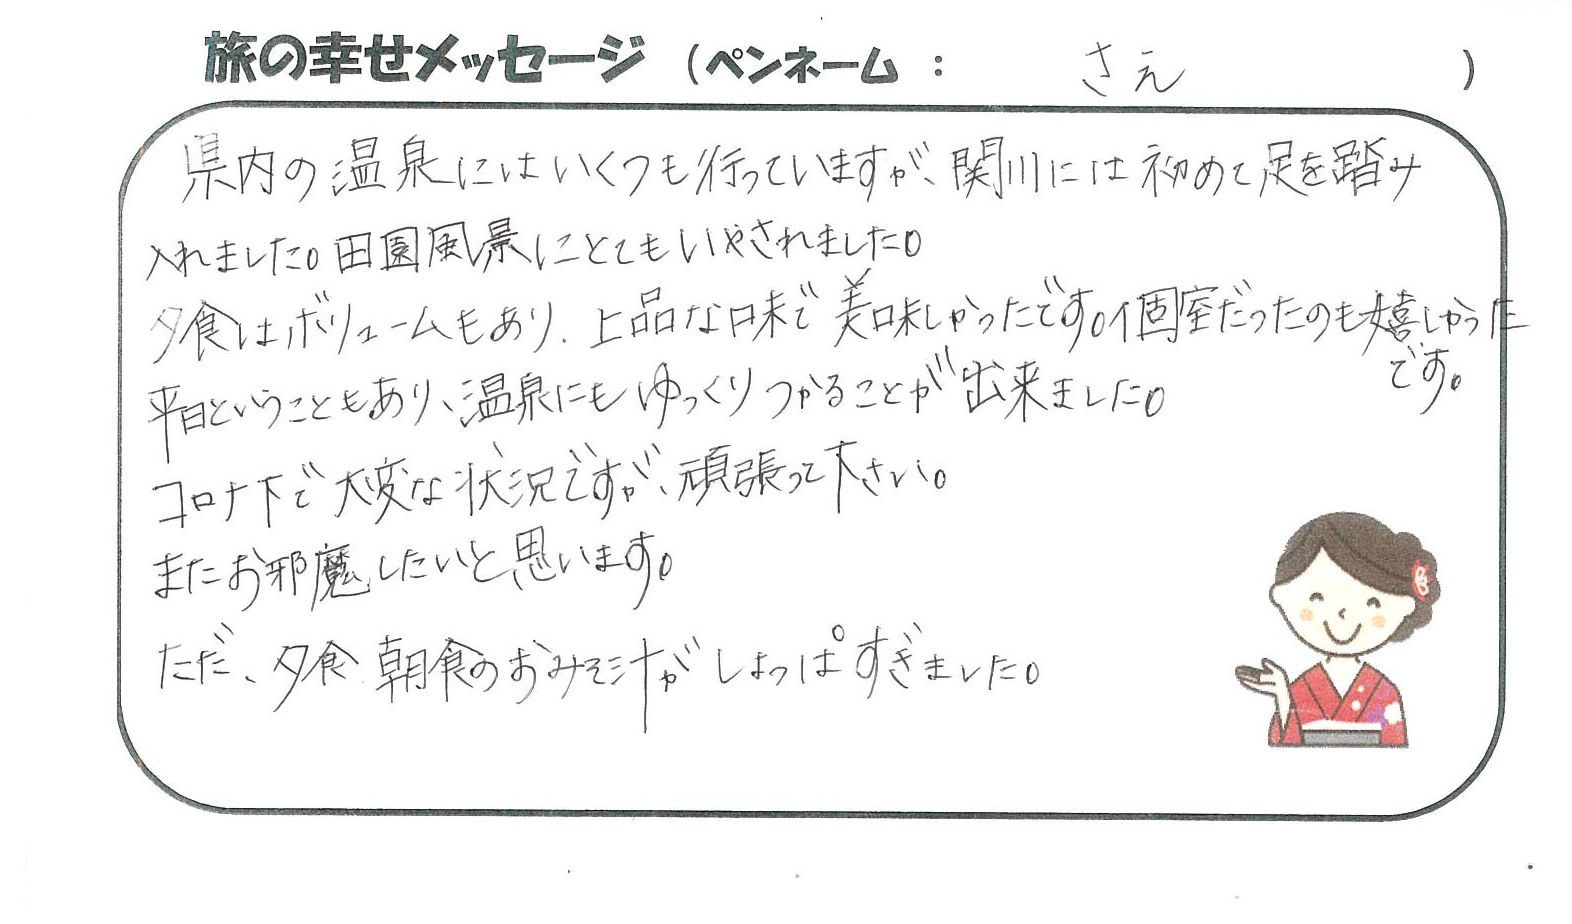 旅の幸せメッセージ (ペンネーム : さえ )
県内の温泉にはいくつも行っていますが、関川には初めて足を踏み
入れました。田園風景にとてもいやされました。
夕食はボリュームもあり、上品な味で美味しかったです。個室だったのも嬉しかった
です。
平日ということもあり、温泉にもゆっくりつかることが出来ました。
コロナ下で大変な状況ですが、頑張って下さい。
またお邪魔したいと思います。
ただ、夕食 朝食のおみそ汁がしょっぱすぎました。